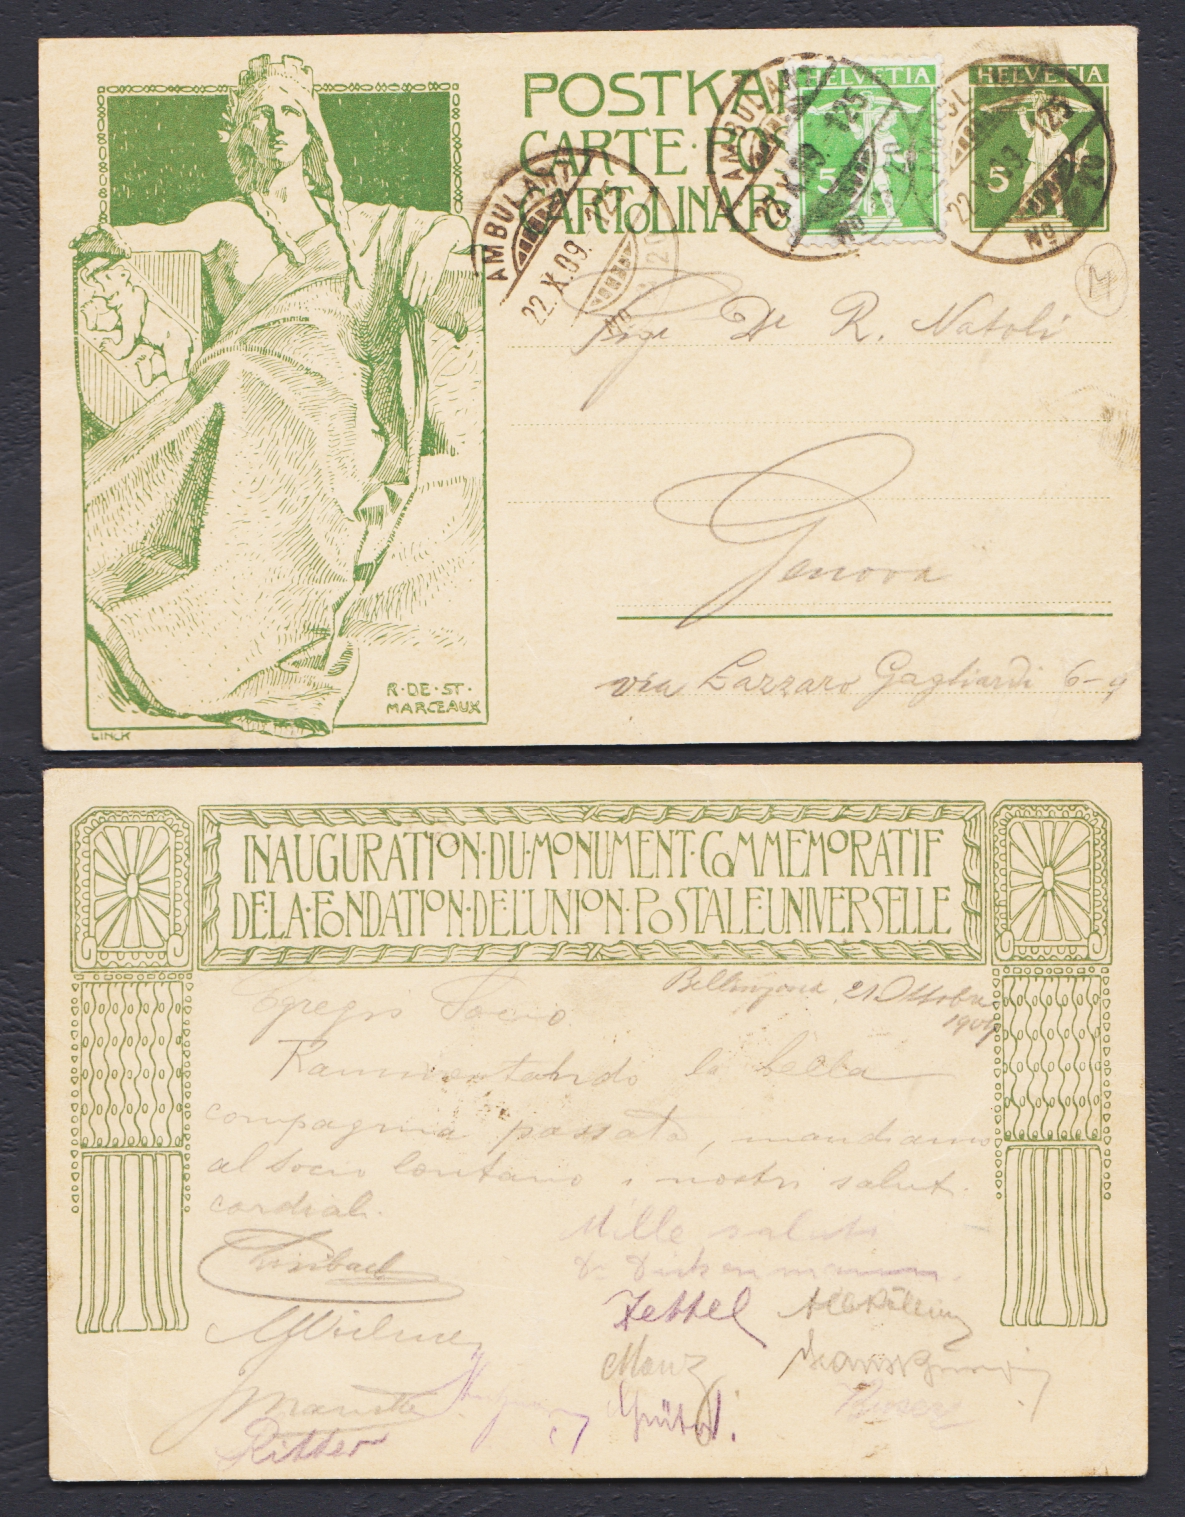 POSTKAR
CARTE·PO
CARTOLINA·PO
HELVETIA
5
HELVETIA
5
AMBULANT
22.X.09.
No
20
AMBULANT
22.X.09.
125
No
20
AMBULANT
22.X.09.
125
No
20
M
Sige Dr R. Natoli
Genova
via Lazzaro Gagliardi 6-9
R·DE·ST·
MARCEAUX
LINCK
INAUGURATION·DU·MONUMENT·COMMEMORATIF
DE·LA·FONDATION·DE·L'UNION·POSTALE·UNIVERSELLE
Bellinzona, 21 Ottobre
1909
Egregio Socio
Rammentando la bella
compagnia passata, mandiamo
al socio lontano i nostri saluti
cordiali.
Mille saluti
Dr
Zettel
Manz
Grütter.
Moser
Ritter